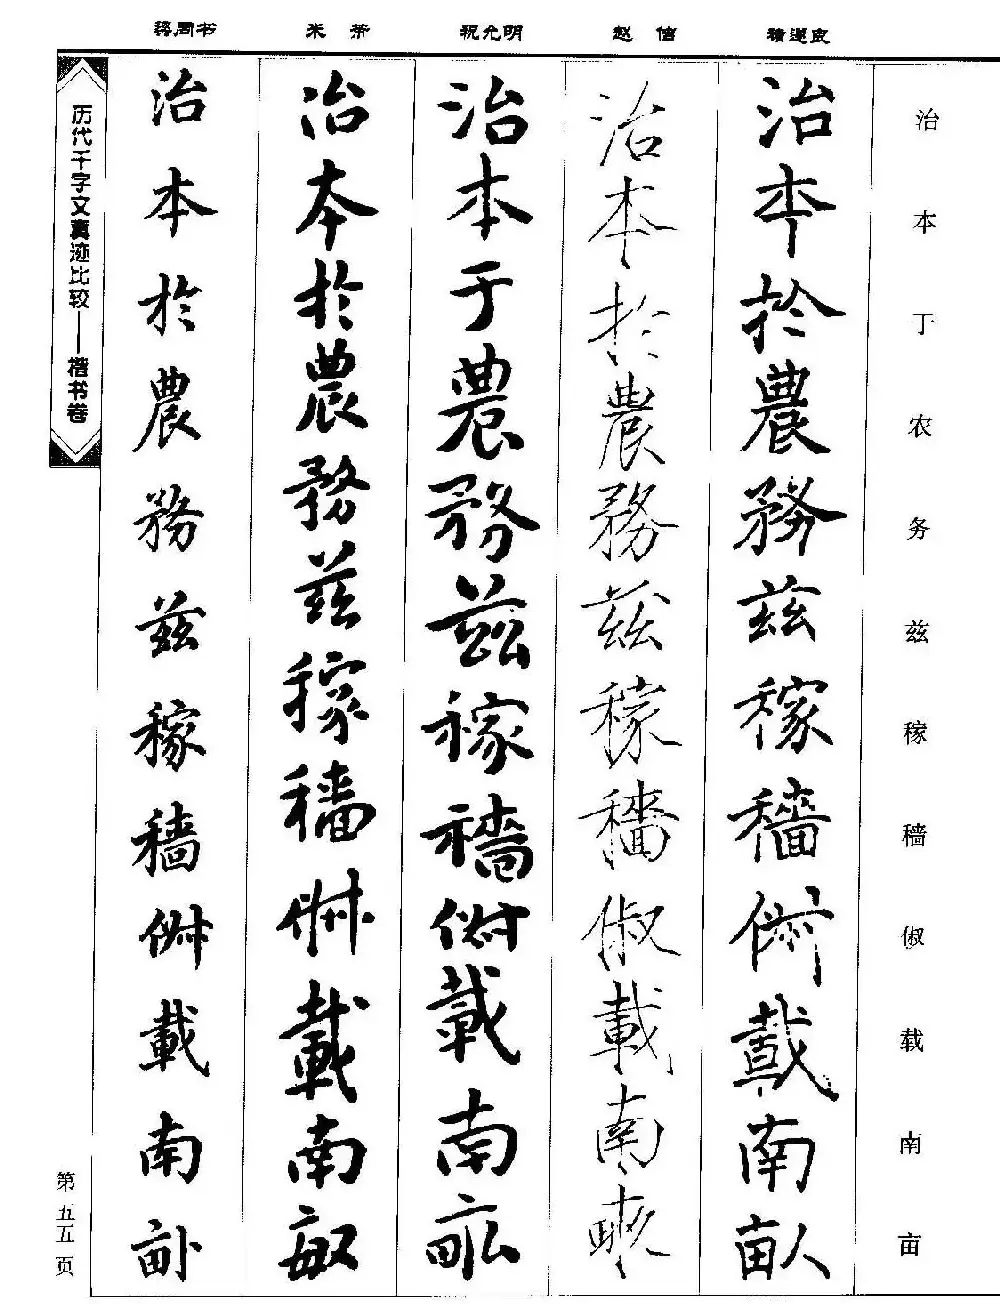 褚遂良
赵佶
祝允明
米芾
治本于农务兹稼穑俶载南亩
治本於農務茲稼穡俶載南畝
治本於農務茲稼穡俶載南畝
治本于農務茲稼穡俶載南畝
治本於農務茲稼穡俶載南畝
治本於農務茲稼穡俶載南畝
历代千字文真迹比较——楷书卷
第五五页